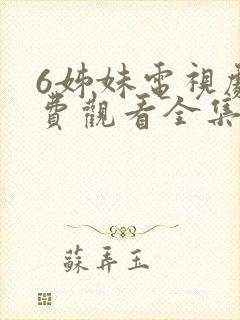 6姊妹電視劇
費觀看全集
蘇弄玉